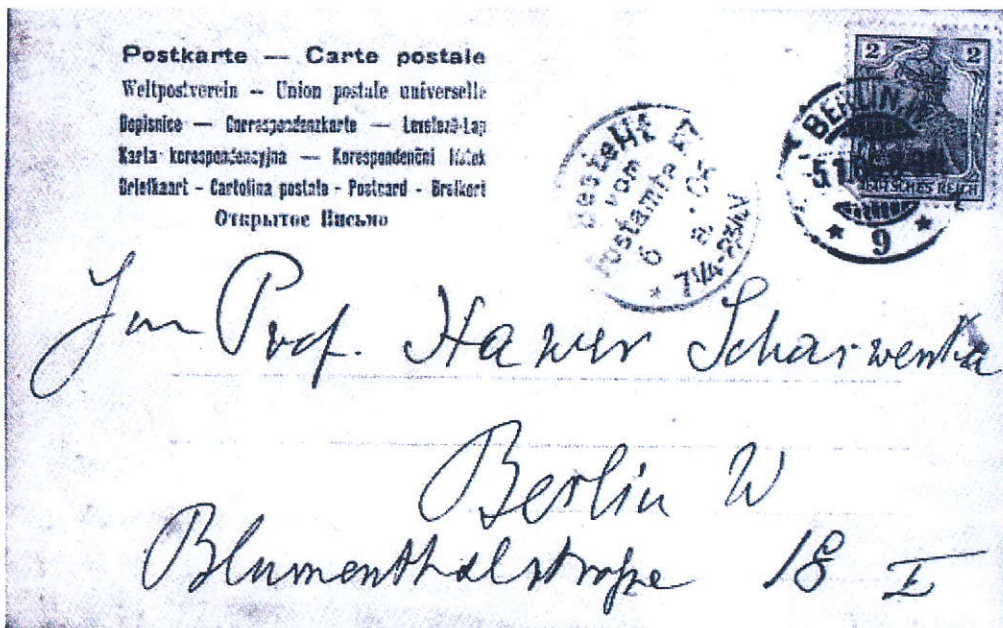 Postkarte — Carte postale
Weltpostverein – Union postale universelle
Dopisnice — Correspondenzkarte — Levelező-Lap
Karta korespondencyjna — Korespondenční lístek
Briefkaart - Cartolina postale - Postcard - Brefkort
Открытое Письмо
2 2
DEUTSCHES REICH
BERLIN
9
Bestellt
vom
Postamte
6
7¼-
Prof. Xaver Scharwenka
Berlin W
Blumenthalstraße 18 I